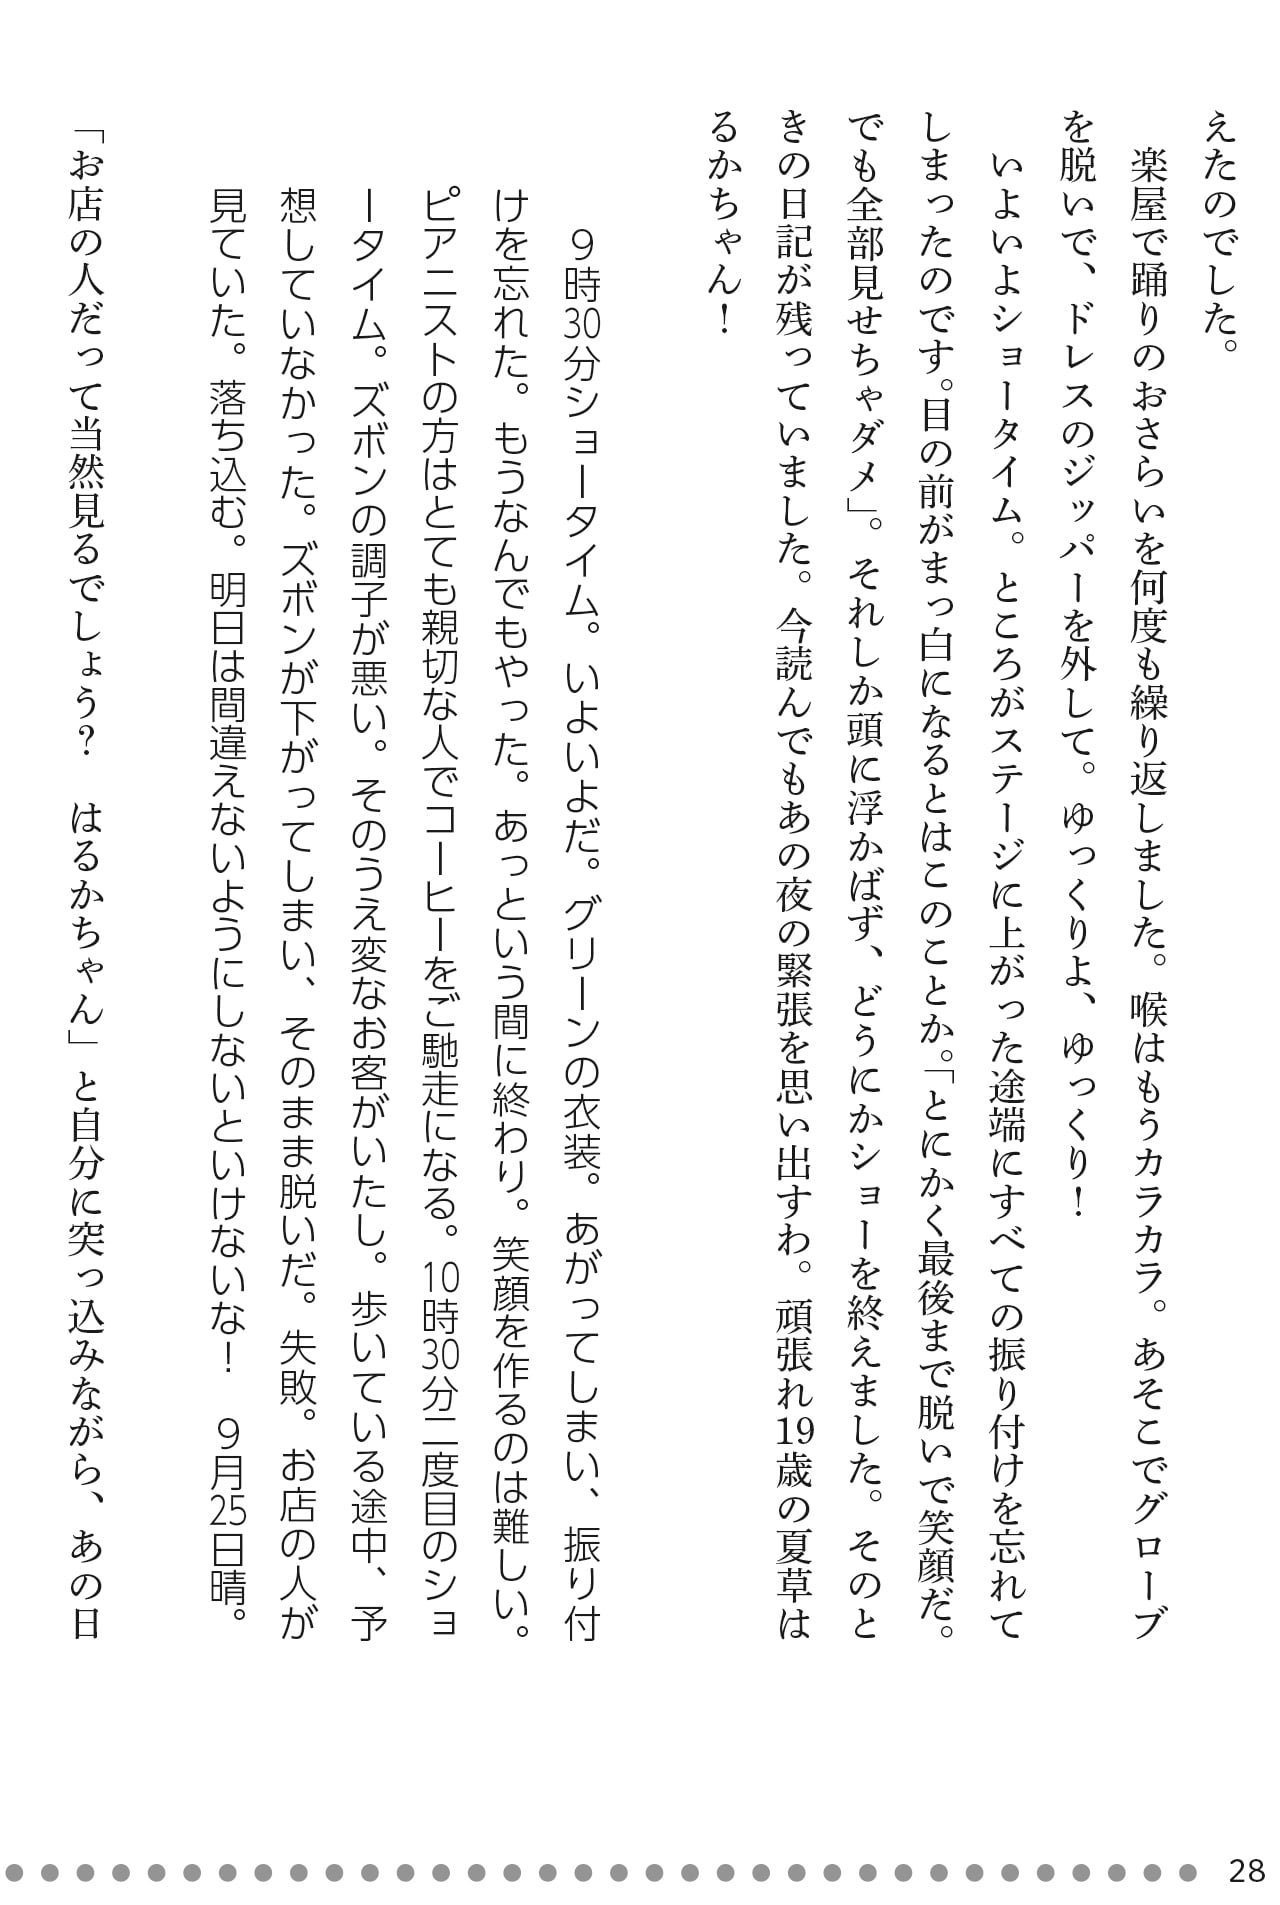 えたのでした。
　楽屋で踊りのおさらいを何度も繰り返しました。喉はもうカラカラ。あそこでグローブ
を脱いで、ドレスのジッパーを外して。ゆっくりよ、ゆっくり！
　いよいよショータイム。ところがステージに上がった途端にすべての振り付けを忘れて
しまったのです。目の前がまっ白になるとはこのことか。「とにかく最後まで脱いで笑顔だ。
でも全部見せちゃダメ」。それしか頭に浮かばず、どうにかショーを終えました。そのと
きの日記が残っていました。今読んでもあの夜の緊張を思い出すわ。頑張れ19歳の夏草は
るかちゃん！
　9時30分ショータイム。いよいよだ。グリーンの衣装。あがってしまい、振り付
けを忘れた。もうなんでもやった。あっという間に終わり。笑顔を作るのは難しい。
ピアニストの方はとても親切な人でコーヒーをご馳走になる。10時30分二度目のショ
ータイム。ズボンの調子が悪い。そのうえ変なお客がいたし。歩いている途中、予
想していなかった。ズボンが下がってしまい、そのまま脱いだ。失敗。お店の人が
見ていた。落ち込む。明日は間違えないようにしないといけないな！　9月25日晴。
「お店の人だって当然見るでしょう？　はるかちゃん」と自分に突っ込みながら、あの日
28